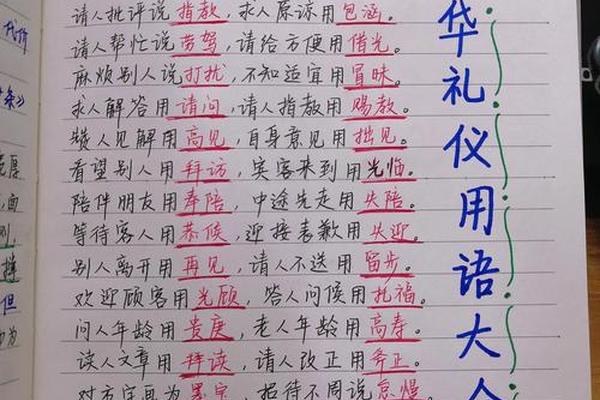 请人批评说指教，求人原谅用包涵。
请人帮忙说劳驾，请给方便用借光。
麻烦别人说打扰，不知适宜用冒昧。
求人解答用请问，请人指教用赐教。
赞人见解用高见，自身意见用拙见。
看望别人用拜访，宾客来到用光临。
陪伴朋友用奉陪，中途先走用失陪。
等待客人用恭候，迎接表歉用失迎。
别人离开用再见，请人不送用留步。
欢迎顾客用光顾，答人问候用托福。
问人年龄用贵庚，老人年龄用高寿。
读人文章用拜读，请人改正用斧正。
对方字画为墨宝，招待不周说怠慢。
华礼仪用语大全